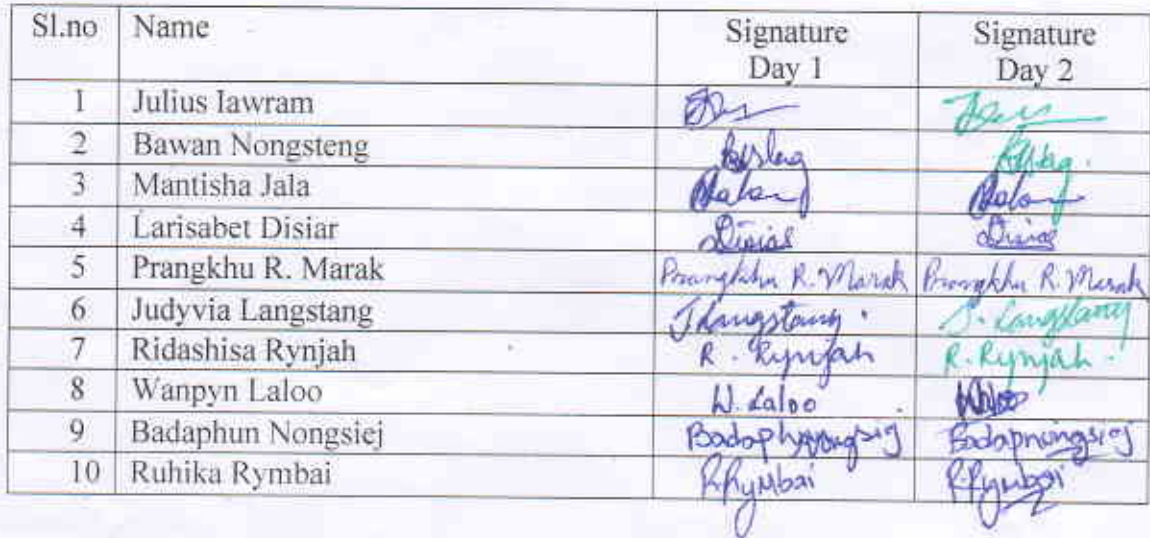 Sl.no Name Signature Day 1 Signature Day 2
1 Julius Iawram
2 Bawan Nongsteng
3 Mantisha Jala
4 Larisabet Disiar Disiar Disiar
5 Prangkhu R. Marak Prangkhu R. Marak Prangkhu R. Marak
6 Judyvia Langstang J Langstang . J. Langstang
7 Ridashisa Rynjah R. Rynjah R. Rynjah .
8 Wanpyn Laloo W. Laloo
9 Badaphun Nongsiej
10 Ruhika Rymbai RRymbai RRymbai